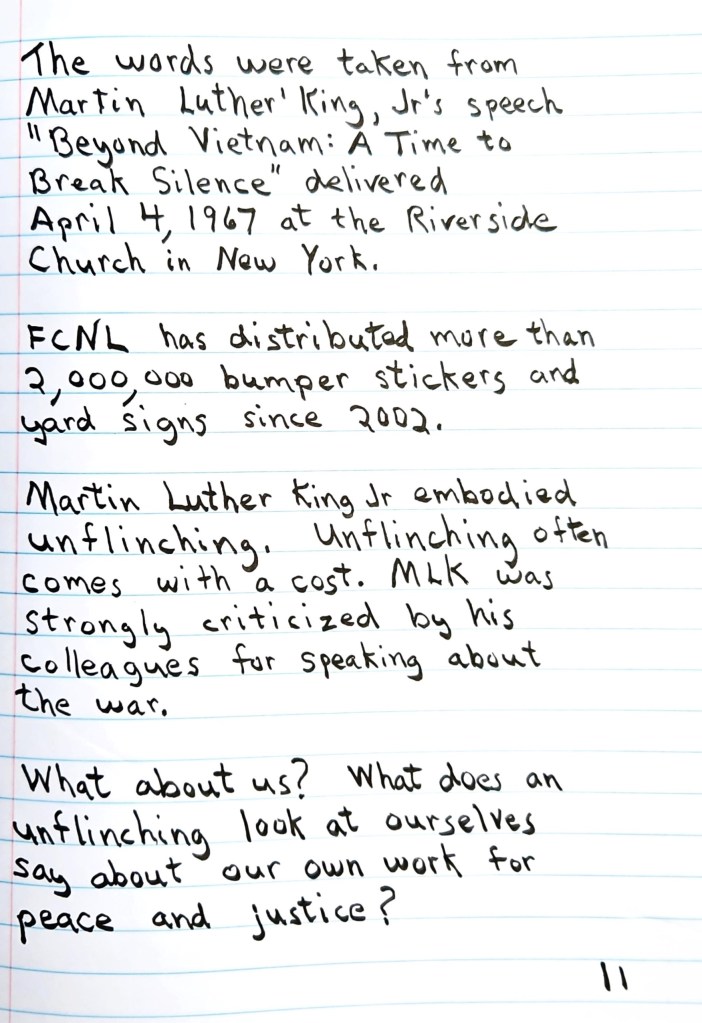 The words were taken from
Martin Luther' King, Jr's speech
"Beyond Vietnam: A Time to
Break Silence" delivered
April 4, 1967 at the Riverside
Church in New York.
FCNL has distributed more than
2,000,000 bumper stickers and
yard signs since 2002.
Martin Luther King Jr embodied
unflinching. Unflinching often
comes with a cost. MLK was
strongly criticized by his
colleagues for speaking about
the war.
What about us? What does an
unflinching look at ourselves
say about our own work for
peace and justice?
11